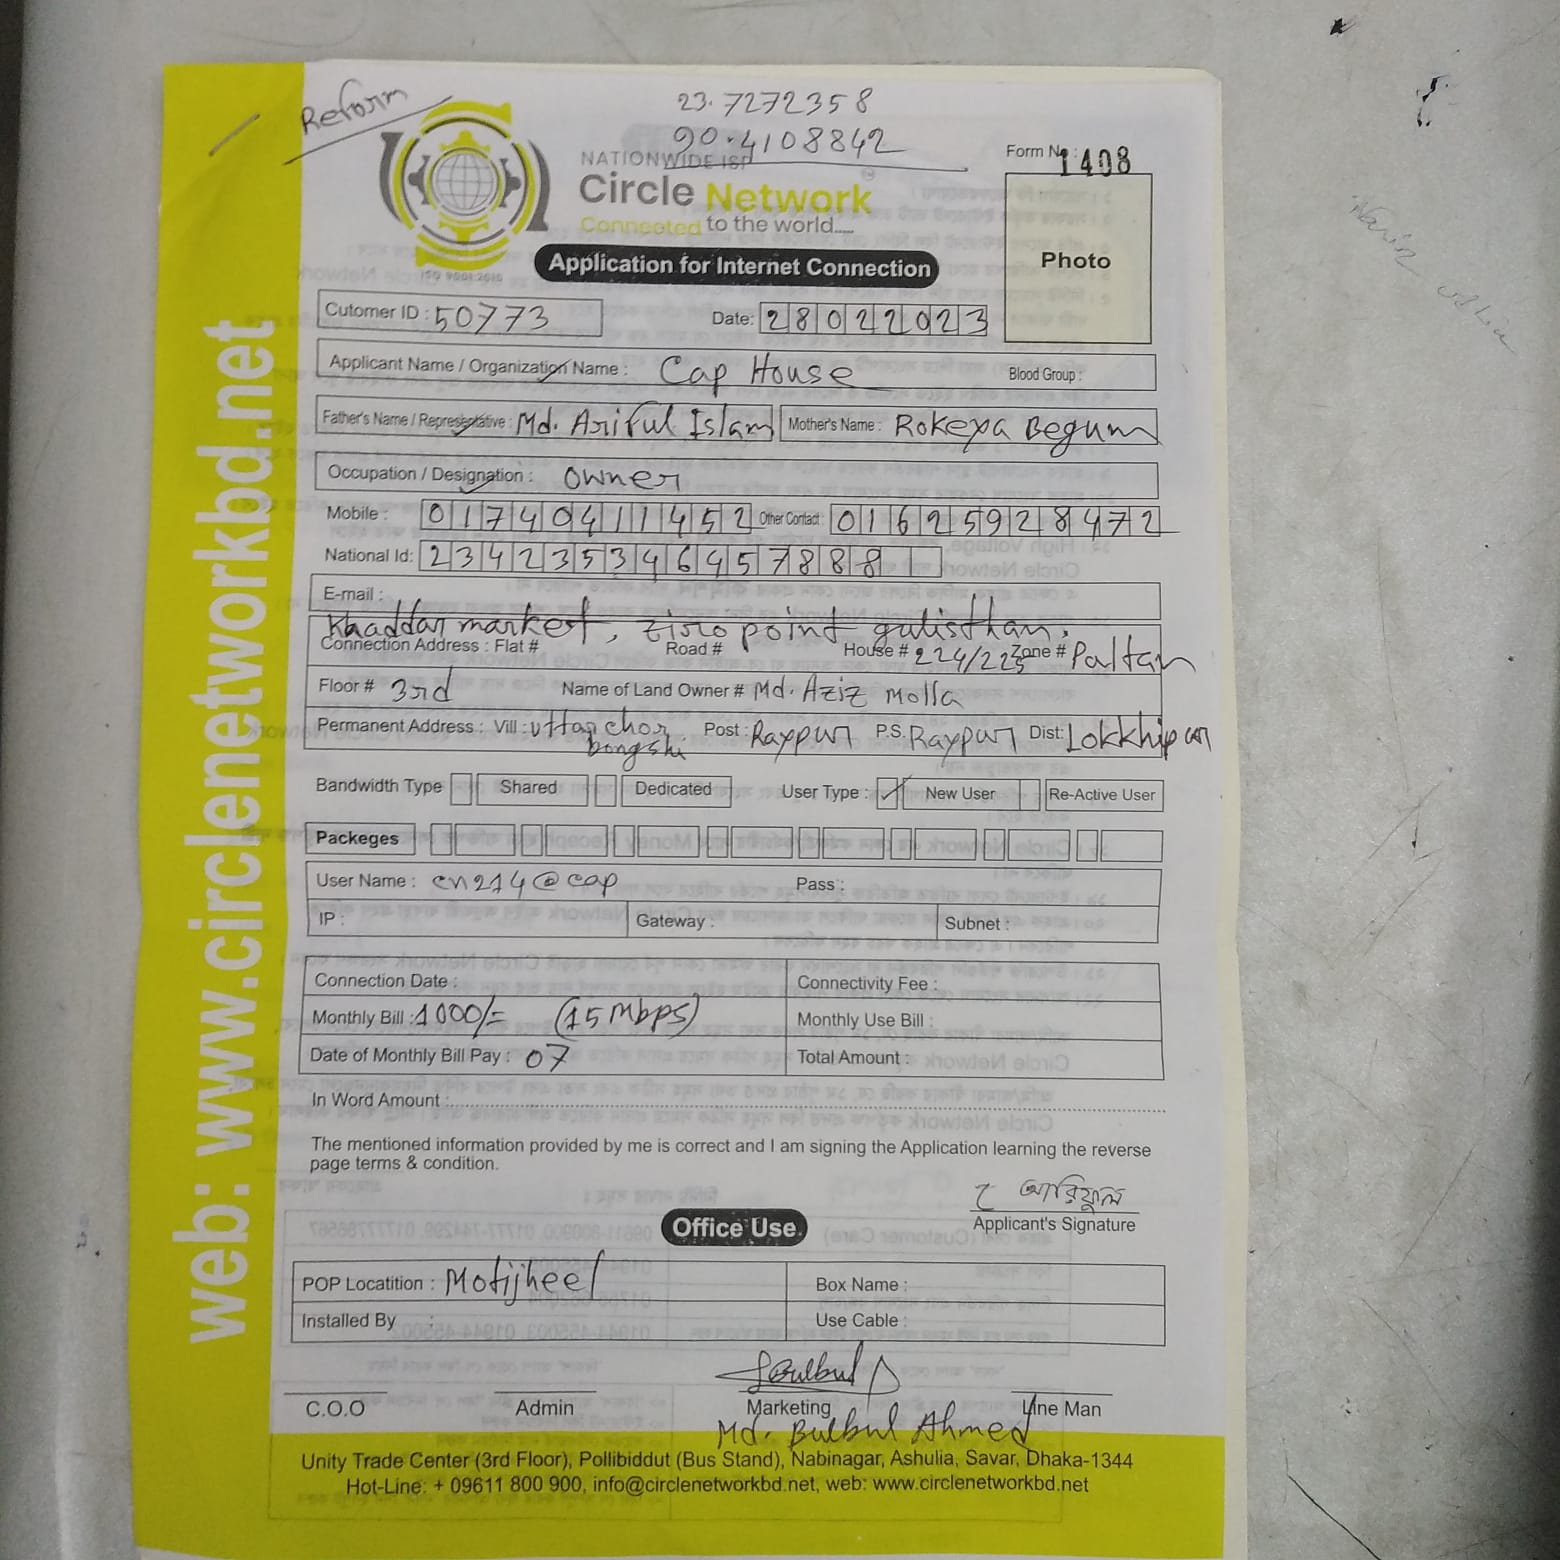 Reform
23.7272358
90.4108842
NATIONWIDE ISP
Form No : 1408
Circle Network
Connected to the world.....
ISO 9001:2015
Application for Internet Connection
Photo
Cutomer ID : 50773
Date: 28022023
Applicant Name / Organization Name : Cap House Blood Group :
Father's Name / Representative : Md. Ariful Islam Mother's Name : Rokeya Begum
Occupation / Designation : Owner
Mobile : 01740411452 Other Contact : 01625928472
National Id: 234235346457888
E-mail :
Khaddar market, ziro point gulisthan.
Connection Address : Flat # Road # House # 224/225 Zone # Paltan
Floor # 3rd Name of Land Owner # Md. Aziz Molla
Permanent Address : Vill : Uttar chor bongshi Post : Raypur P.S. Raypur Dist: Lokkhipur
Bandwidth Type Shared Dedicated User Type : ✓ New User Re-Active User
Packeges
User Name : cn214@cap Pass :
IP : Gateway : Subnet :
Connection Date : Connectivity Fee :
Monthly Bill : 1000/= (15 Mbps) Monthly Use Bill :
Date of Monthly Bill Pay : 07 Total Amount :
In Word Amount :
The mentioned information provided by me is correct and I am signing the Application learning the reverse
page terms & condition.
আরিফুল
Applicant's Signature
Office Use
POP Locatition : Motijheel Box Name :
Installed By : Use Cable :
Bulbul
C.O.O Admin Marketing Line Man
Md. Bulbul Ahmed
Unity Trade Center (3rd Floor), Pollibiddut (Bus Stand), Nabinagar, Ashulia, Savar, Dhaka-1344
Hot-Line: + 09611 800 900, info@circlenetworkbd.net, web: www.circlenetworkbd.net
web: www.circlenetworkbd.net